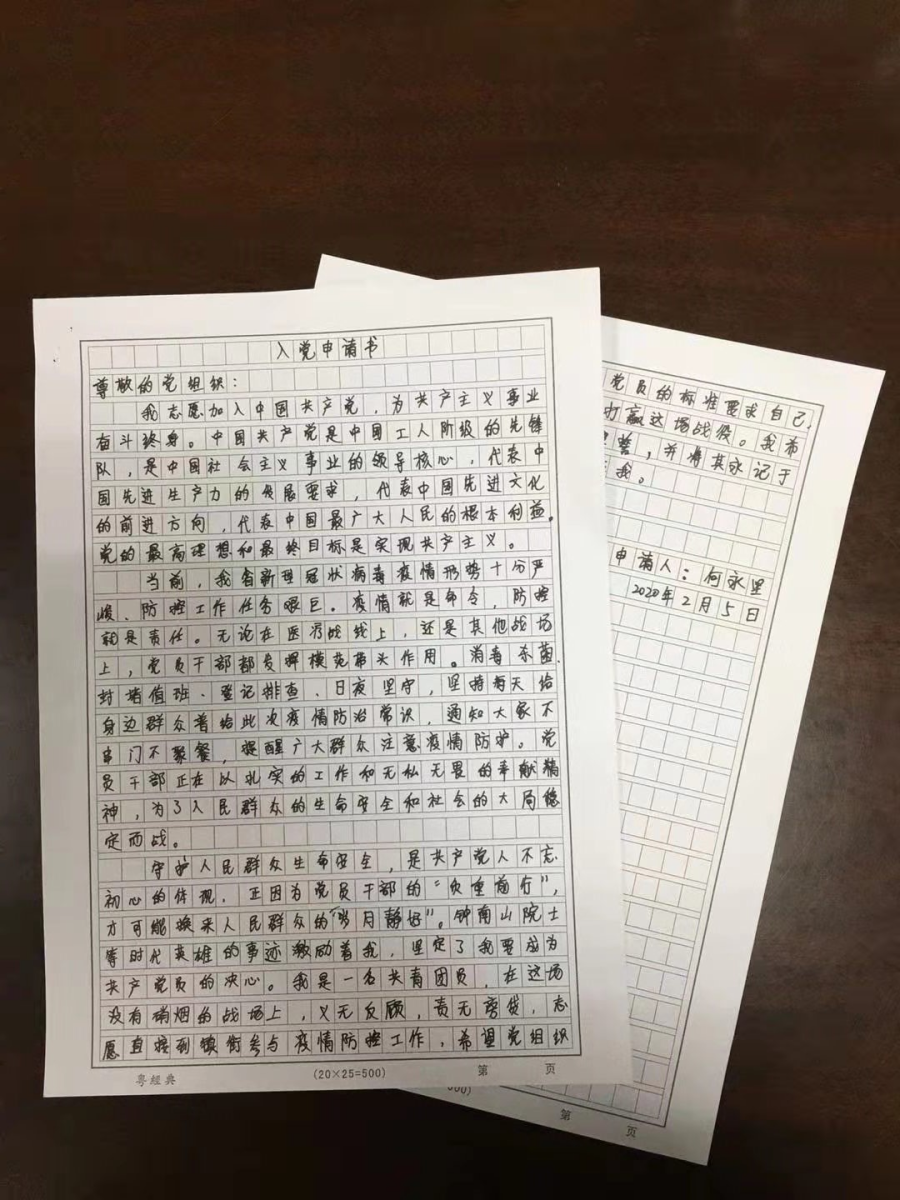 入党申请书
尊敬的党组织：
我志愿加入中国共产党，为共产主义事业
奋斗终身。中国共产党是中国工人阶级的先锋
队，是中国社会主义事业的领导核心，代表中
国先进生产力的发展要求，代表中国先进文化
的前进方向，代表中国最广大人民的根本利益。
党的最高理想和最终目标是实现共产主义。
当前，我省新型冠状病毒疫情形势十分严
峻、防控工作任务艰巨。疫情就是命令，防控
就是责任。无论在医疗战线上，还是其他战场
上，党员干部都发挥模范带头作用。消毒杀菌、
封堵值班、登记排查、日夜坚守，坚持每天给
身边群众普给此次疫情防治常识，通知大家不
串门不聚餐，提醒广大群众注意疫情防护。党
员干部正在以扎实的工作和无私无畏的奉献精
神，为了人民群众的生命安全和社会的大局稳
定而战。
守护人民群众生命安全，是共产党人不忘
初心的体现，正因为党员干部的“负重前行”，
才可能换来人民群众的“岁月静好”。钟南山院士
等时代英雄的事迹激励着我，坚定了我要成为
共产党员的决心。我是一名共青团员，在这场
没有硝烟的战场上，义无反顾，责无旁贷，志
愿直接到镇街参与疫情防控工作，希望党组织
粤经典 (20×25=500) 第 页
党员的标准要求自己，
打赢这场战役。我希
誓，并将其永记于
我。
申请人：何永里
2020年2月5日
500) 第 页